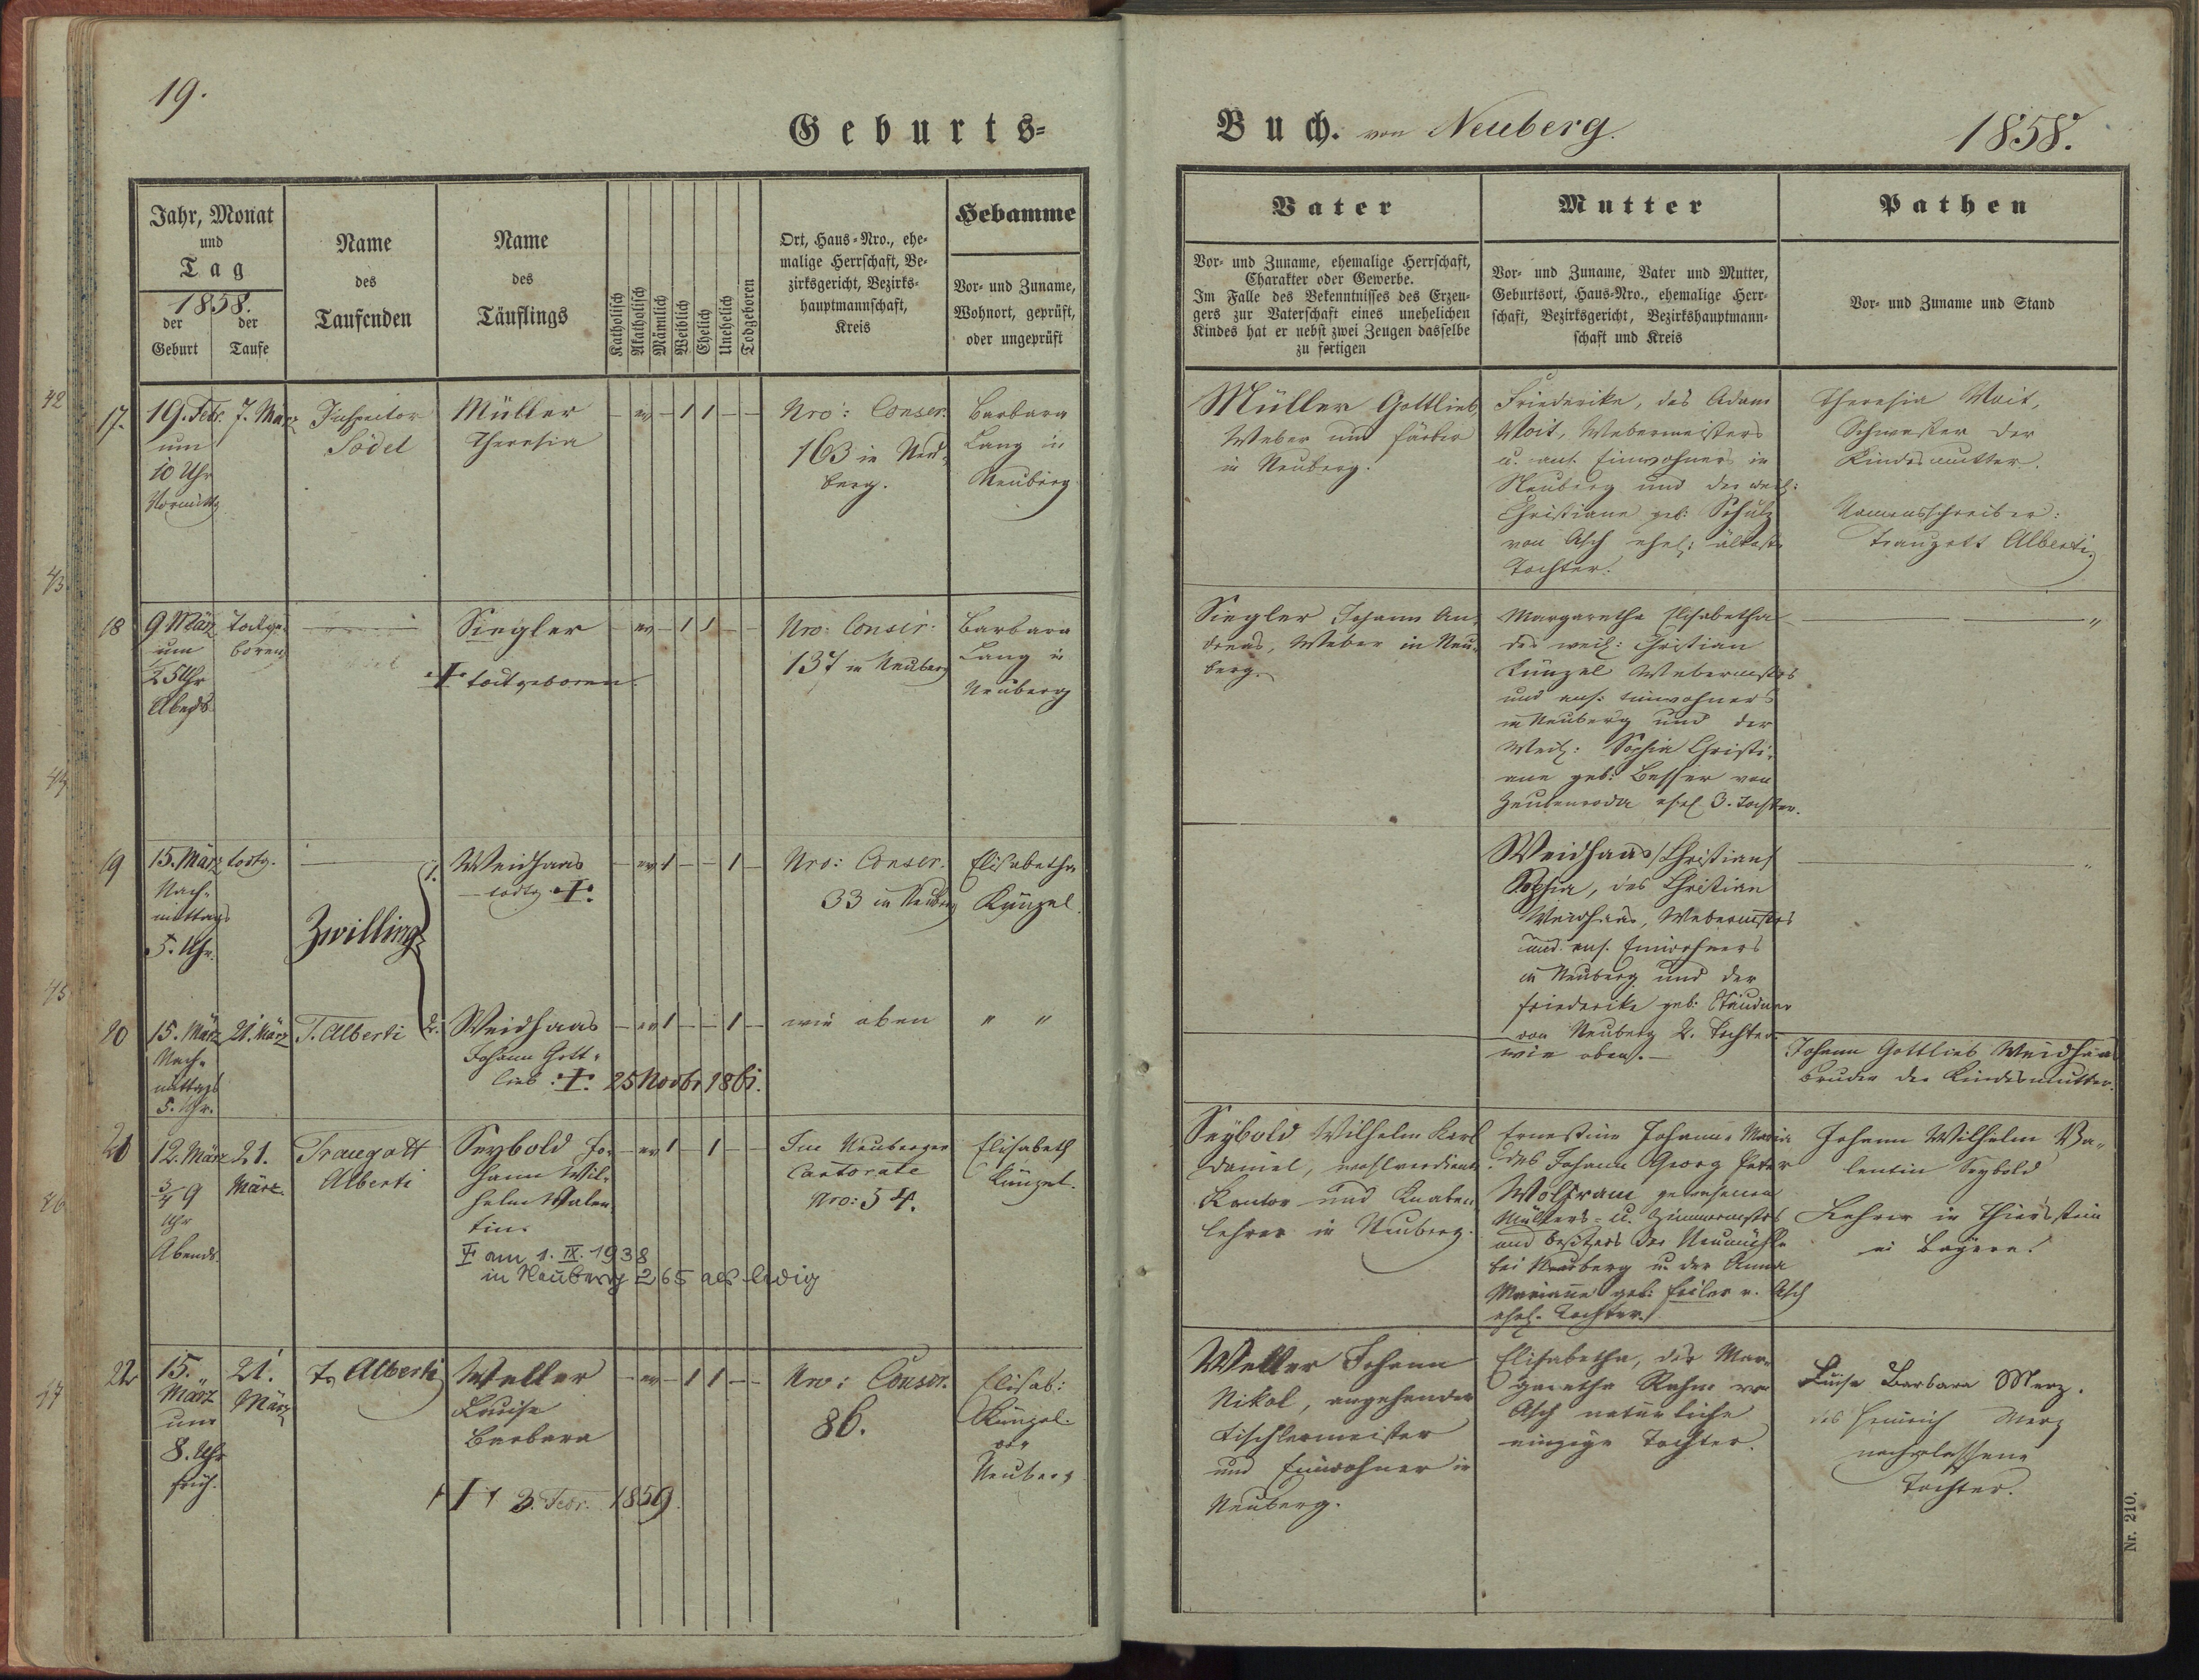 19.
Geburts-
Jahr, Monat
und
Tag
1858.
der Geburt
der Taufe
Name
des
Taufenden
Name
des
Täuflings
Katholisch
Akatholisch
Männlich
Weiblich
Ehelich
Unehelich
Todgeboren
Ort, Haus-Nro., ehe-
malige Herrschaft, Be-
zirksgericht, Bezirks-
hauptmannschaft,
Kreis
Hebamme
Vor- und Zuname,
Wohnort, geprüft,
oder ungeprüft
17.
19. Febr.
um
10 Uhr
Vormittg
7. März
Inspector
Södel
Müller
Theresia
— ev — 1 1 — —
Nro: Conscr.
163 in Neu-
berg.
Barbara
Lang in
Neuberg
18
9 März
um
Uhr
Abends
todtge-
boren
Siegler
† todtgeboren.
— ev — 1 1 — —
Nro: Conscr.
137 in Neuberg
Barbara
Lang in
Neuberg
19
15. März
Nach-
mittags
5. Uhr.
todtg.
Zwilling
1. Weidhaas
todtg. †.
— ev 1 — — 1 —
Nro: Conscr.
33 in Neuberg
Elisabetha
Künzel.
20
15. März
Nach-
mittags
5. Uhr.
21. März
T. Alberti
2. Weidhaas
Johann Gott-
lieb. †. 25 Novbr 1861.
— ev 1 — — 1 —
wie oben
" "
21
12. März
3/4 9
Uhr
Abends.
21.
März.
Traugott
Alberti
Seybold Jo-
hann Wil-
helm Valen-
tin.
† am 1. IX. 1938
in Neuberg 265 als ledig
— ev 1 — 1 — —
Im Neuberger
Cantorate
Nro: 54.
Elisabeth
Künzel.
22
15.
März
um
8. Uhr
früh.
21.
März
T. Alberti
Weller
Louise
Barbara
† 3. Febr. 1859.
— ev — 1 1 — —
Nro: Conscr.
86.
Elisab:
Künzel
von
Neuberg
42
43
44
45
46
47
Buch. von Neuberg.
1858.
Vater
Vor- und Zuname, ehemalige Herrschaft,
Charakter oder Gewerbe.
Im Falle des Bekenntnisses des Erzeu-
gers zur Vaterschaft eines unehelichen
Kindes hat er nebst zwei Zeugen dasselbe
zu fertigen
Mutter
Vor- und Zuname, Vater und Mutter,
Geburtsort, Haus-Nro., ehemalige Herr-
schaft, Bezirksgericht, Bezirkshauptmann-
schaft und Kreis
Pathen
Vor- und Zuname und Stand
Müller Gottlieb
Weber und Färber
in Neuberg.
Friederike, des Adam
Voit, Webermeisters
u. ans. Einwohners in
Neuberg und der weil:
Christiane geb: Schulz
von Asch ehel: älteste
Tochter.
Theresia Voit,
Schwester der
Kindesmutter.
Namensschreiber:
Traugott Alberti.
Siegler Johann An-
dreas, Weber in Neu-
berg.
Margaretha Elisabetha
des weil: Christian
Künzel Webermstrs
und ans: Einwohners
in Neuberg und der
Weil: Sophia Christi-
ane geb: Besser von
Zeulenroda ehel 3. Tochter.
Weidhaas /Christian/
Sophia, des Christian
Weidhaas, Webermstrs
und ans. Einwohners
in Neuberg und der
Friederike geb. Stäudner
von Neuberg 2. Tochter.
wie oben.—
Johann Gottlieb Weidhaas
Bruder der Kindesmutter.
Seybold Wilhelm Karl
Daniel, wohlverdienter
Kantor und Knaben-
lehrer in Neuberg.
Ernestine Johanne Maria
des Johann Georg Peter
Wolfram gewesenen
Müllers- u. Zimmermstrs
und Besitzers der Neumühle
bei Neuberg u. der Anna
Mariane geb: Feiler v. Asch
ehel. Tochter.
Johann Wilhelm Va-
lentin Seybold
Lehrer in Thierstein
in Bayern.
Weller Johann
Nikol, angehender
Tischlermeister
und Einwohner in
Neuberg.
Elisabetha, der Mar-
garetha Rahm von
Asch natürliche
einzige Tochter.
Luise Barbara Merz.
des Heinrich Merz
nachgelassene
Tochter.
Nr. 210.